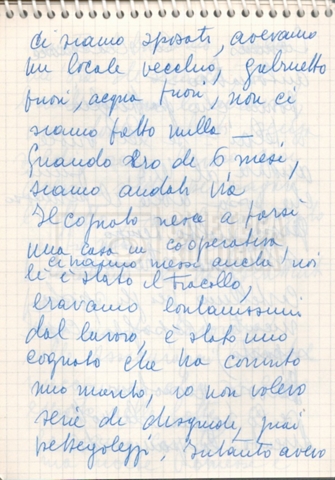 ci siamo sposati, avevamo
un locale vecchio, gabinetto
fuori, acqua fuori, non ci
siamo fatto nulla —
Quando ero di 6 mesi,
siamo andati via
Il cognato riesce a farsi
una casa in cooperativa
ci siamo messi anche noi
lì c'è stato il fracello,
eravamo lontanissimi
dal lavoro, è stato mio
cognato che ha convinto
mio marito, io non volevo
serie di disguidi, guai
pettegolezzi, intanto avevo